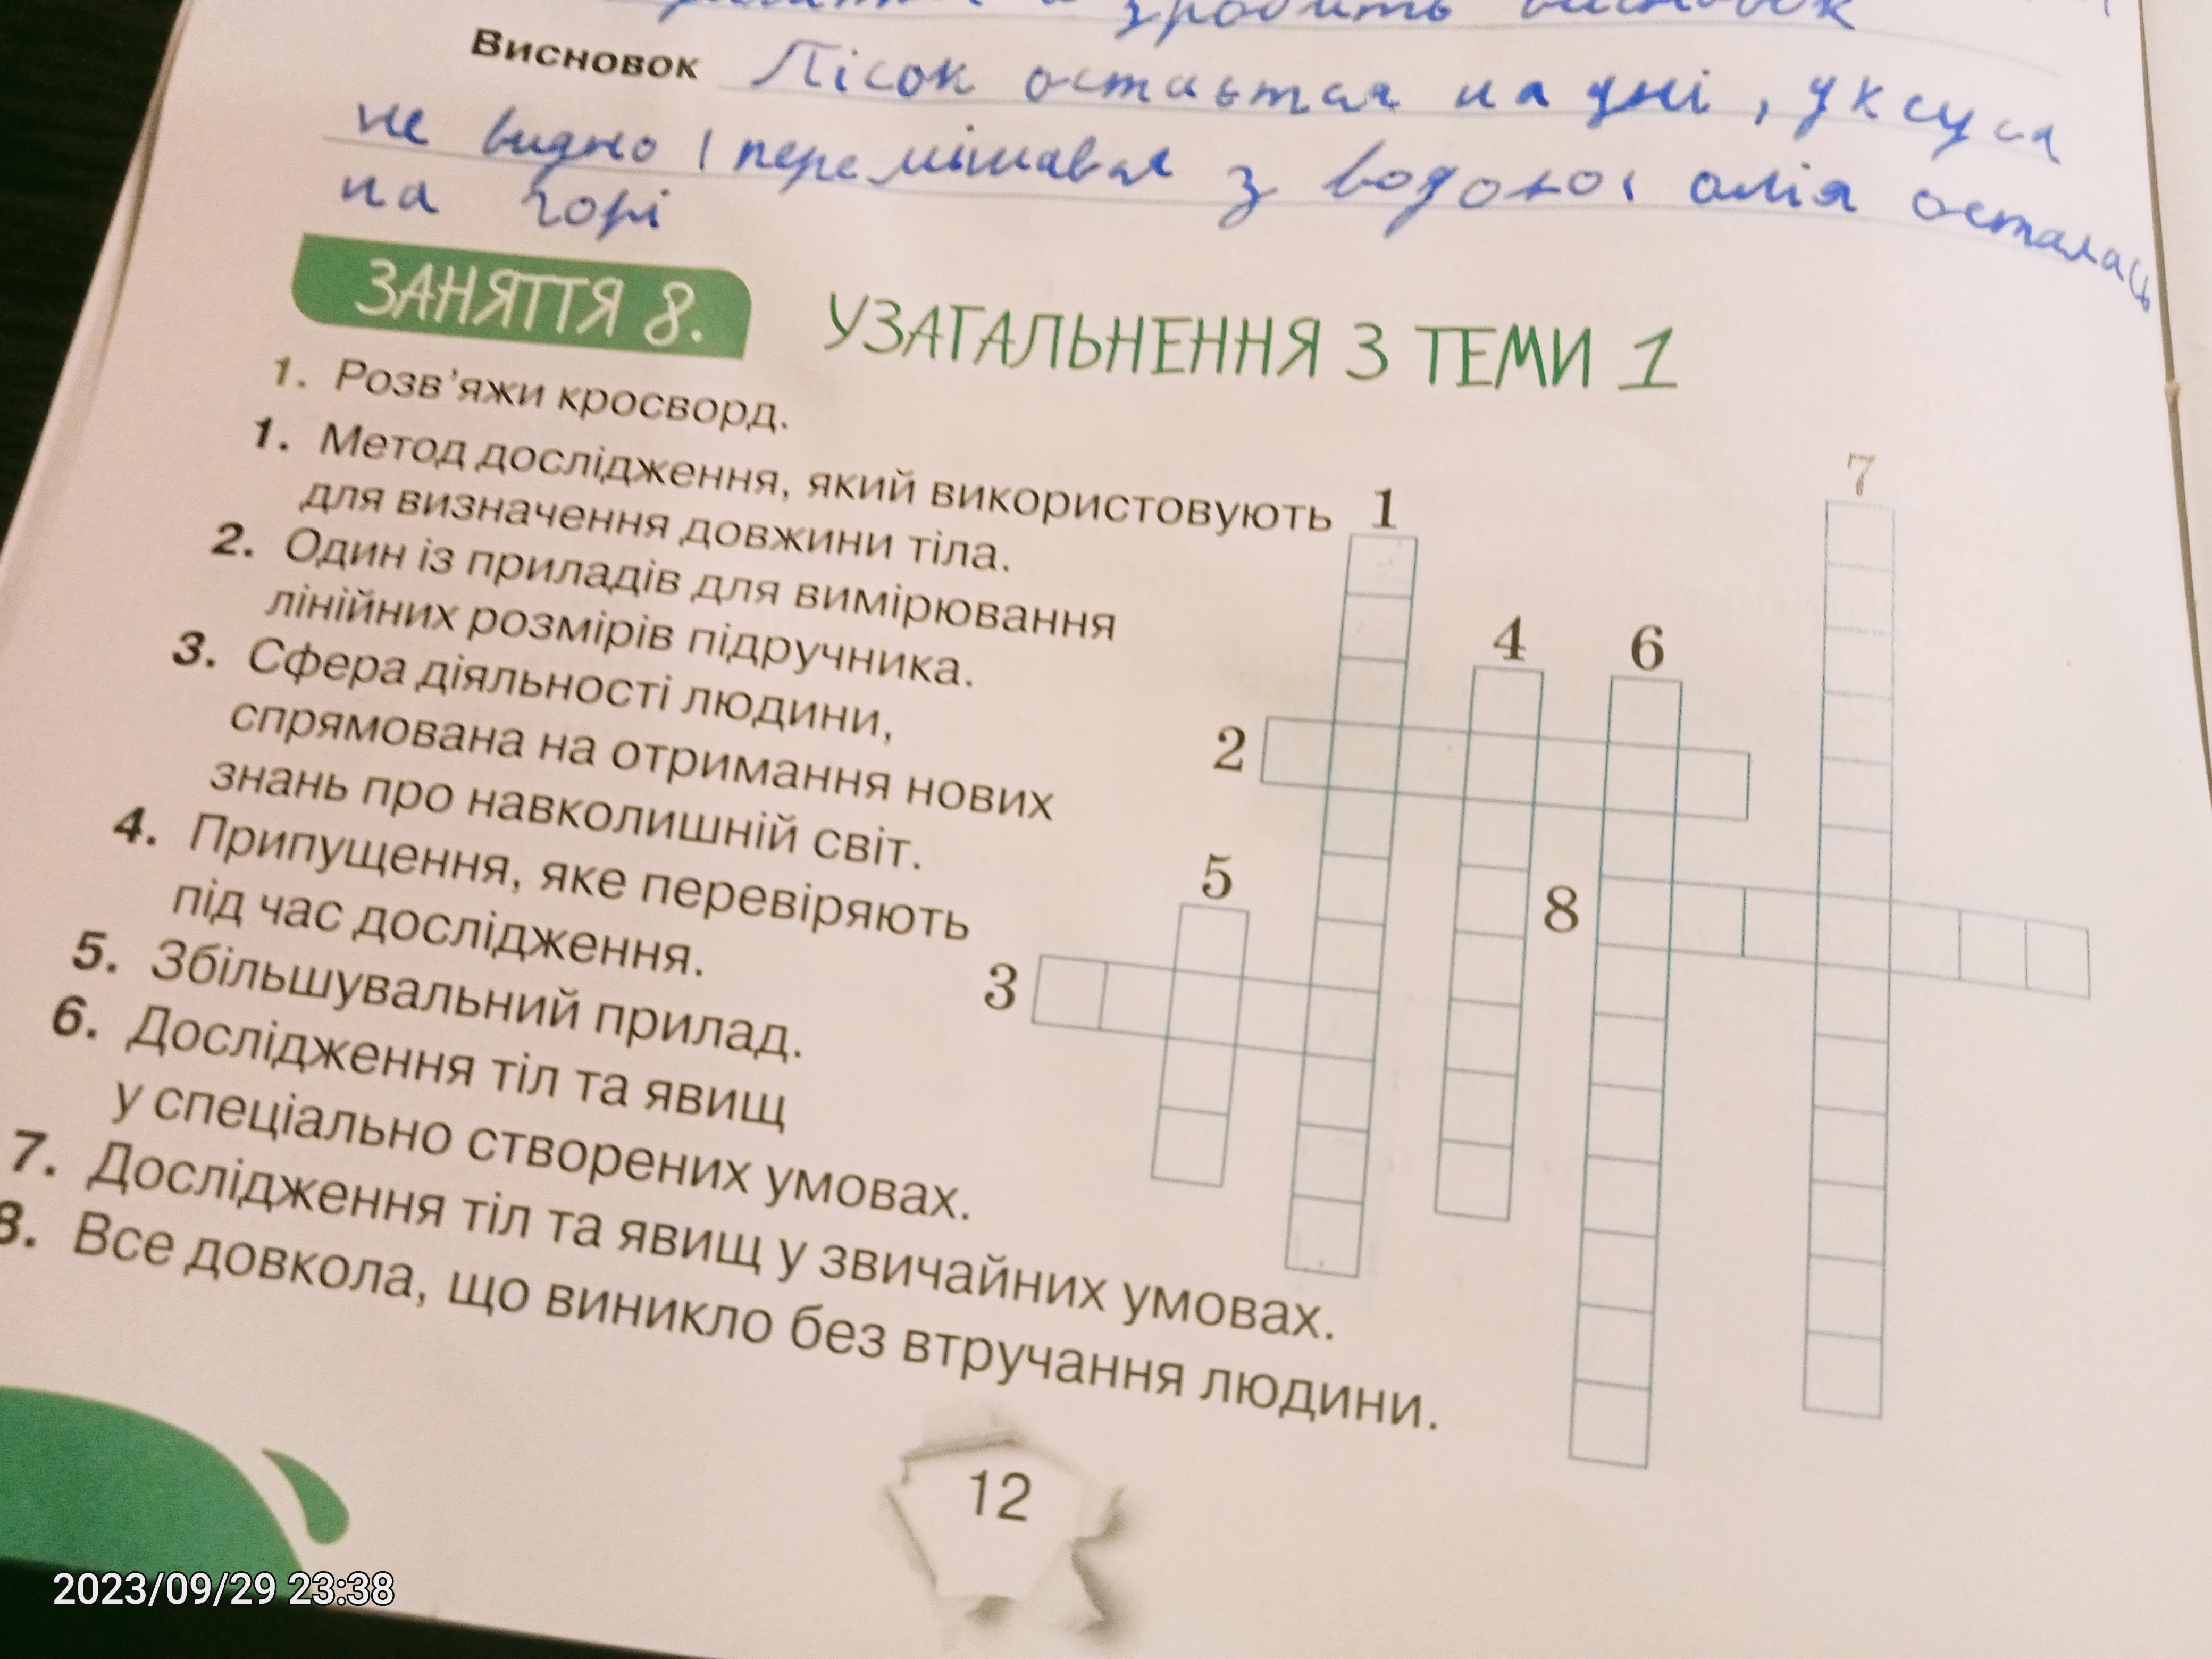 зробить висновок
Висновок Пісок остаьтая на дні, уксуса
не видно і перемішавая з водою, олія осталась
на горі
ЗАНЯТТЯ 8. УЗАГАЛЬНЕННЯ З ТЕМИ 1
1. Розв'яжи кросворд.
1. Метод дослідження, який використовують
для визначення довжини тіла.
2. Один із приладів для вимірювання
лінійних розмірів підручника.
3. Сфера діяльності людини,
спрямована на отримання нових
знань про навколишній світ.
4. Припущення, яке перевіряють
під час дослідження.
5. Збільшувальний прилад.
6. Дослідження тіл та явищ
у спеціально створених умовах.
7. Дослідження тіл та явищ у звичайних умовах.
8. Все довкола, що виникло без втручання людини.
7
1
4 6
2
5
8
3
12
2023/09/29 23:38